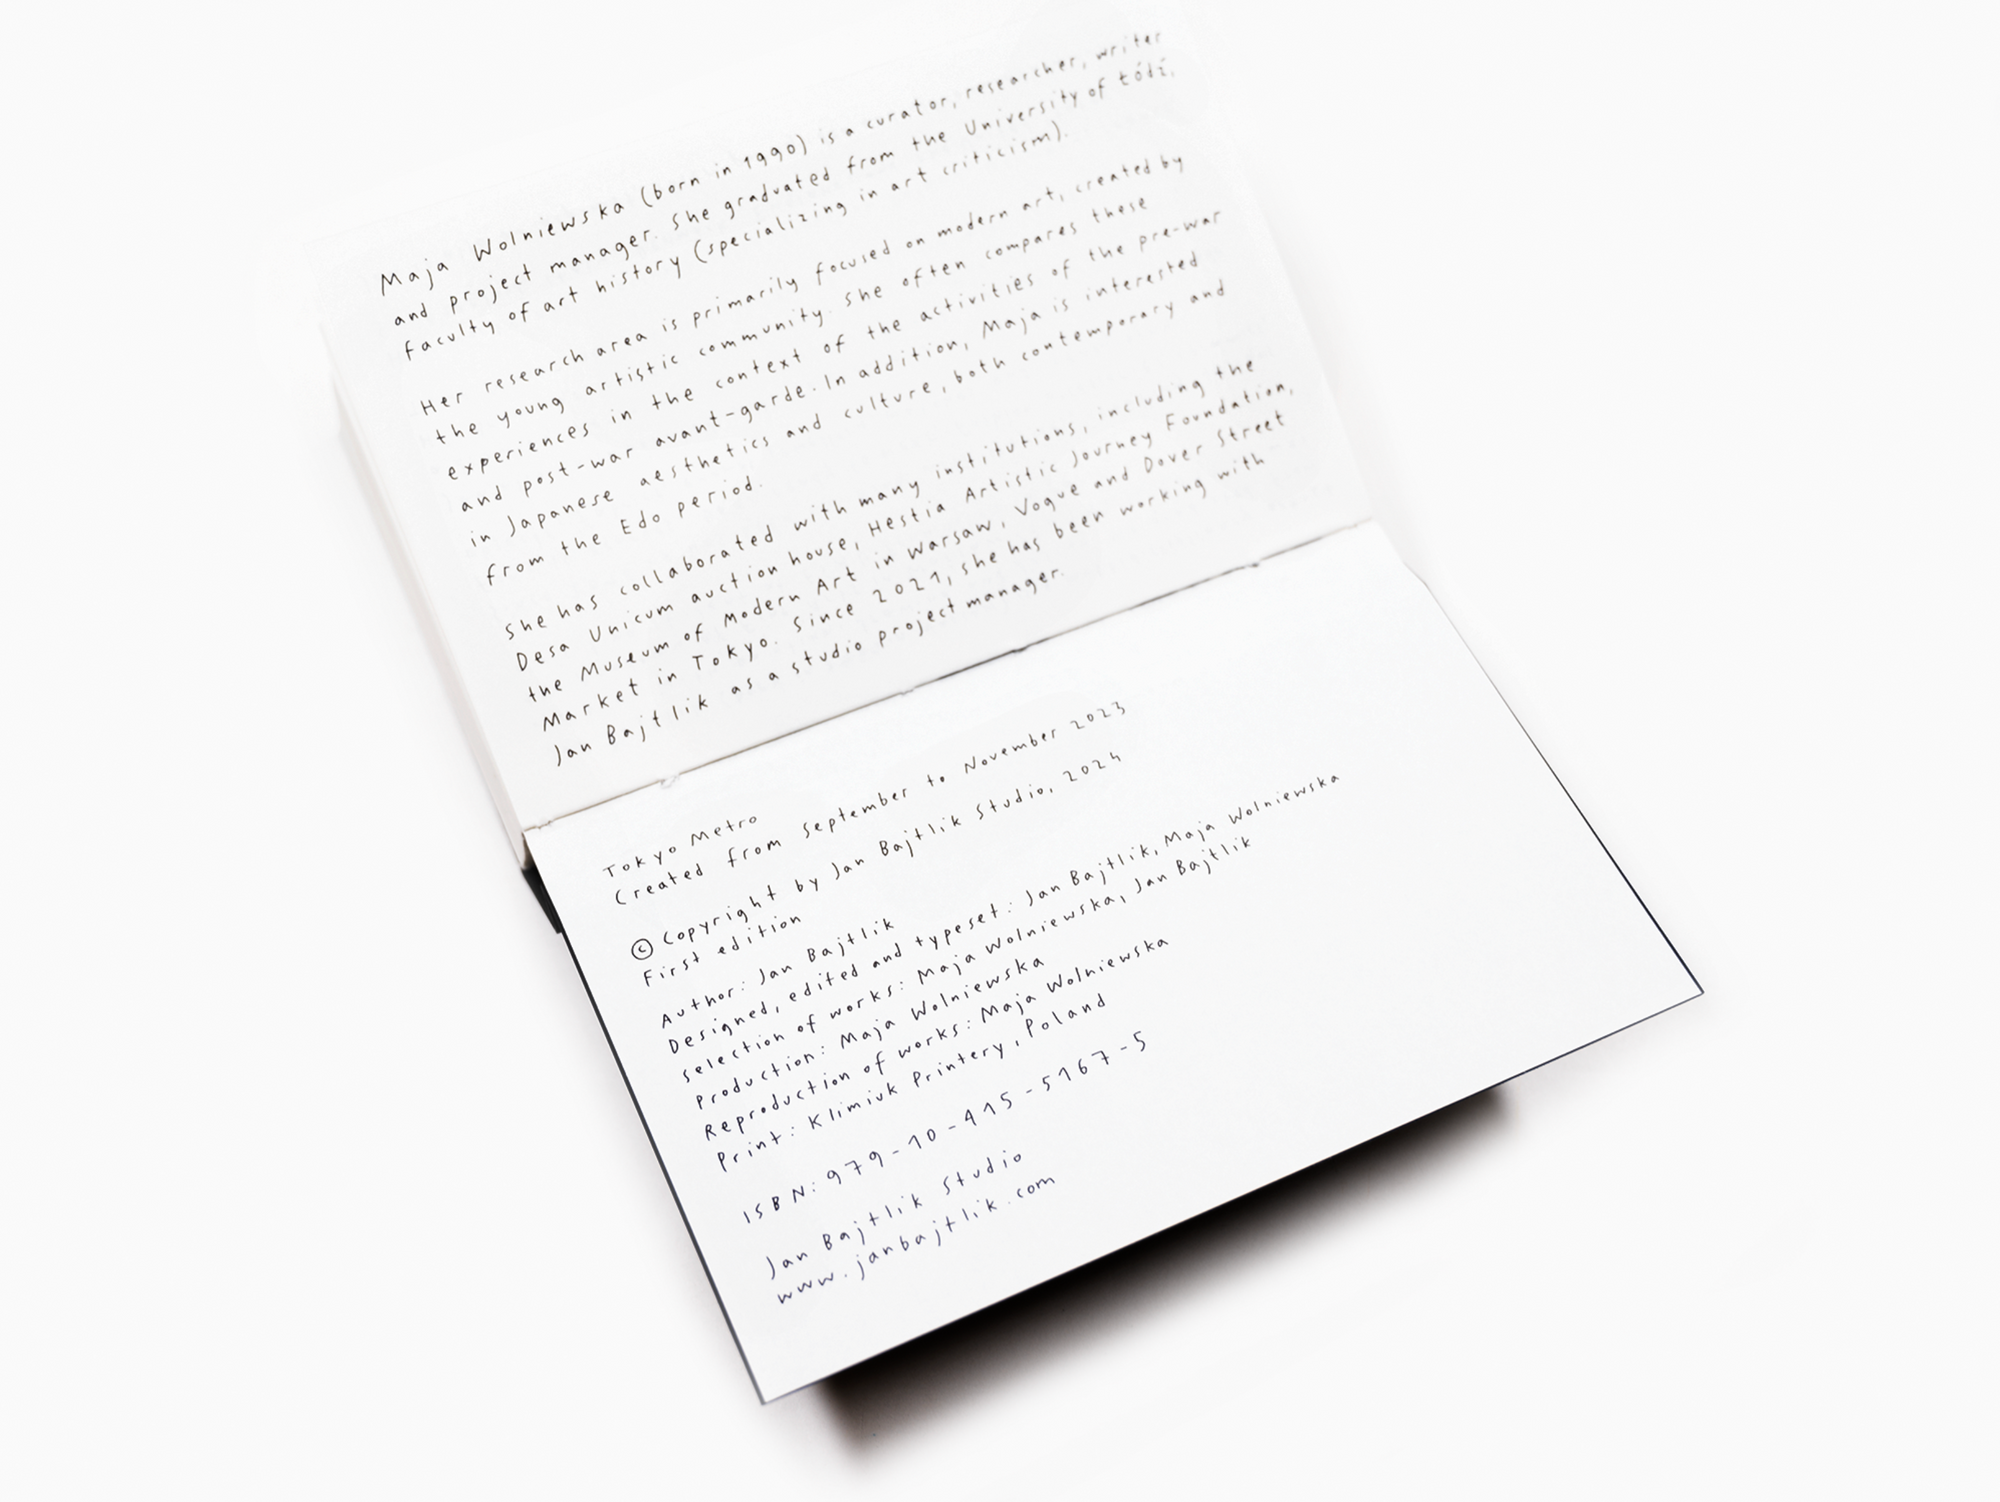 Maja Wolniewska (born in 1990) is a curator, researcher, writer
and project manager. She graduated from the University of Łódź,
faculty of art history (specializing in art criticism).
Her research area is primarily focused on modern art, created by
the young artistic community. She often compares these
experiences in the context of the activities of the pre-war
and post-war avant-garde. In addition, Maja is interested
in Japanese aesthetics and culture, both contemporary and
from the Edo period.
She has collaborated with many institutions, including the
Desa Unicum auction house, Hestia Artistic Journey Foundation,
the Museum of Modern Art in Warsaw, Vogue and Dover Street
Market in Tokyo. Since 2021, she has been working with
Jan Bajtlik as a studio project manager.
Tokyo Metro
Created from September to November 2023
© Copyright by Jan Bajtlik Studio, 2024
First edition
Author: Jan Bajtlik
Designed, edited and typeset: Jan Bajtlik, Maja Wolniewska
Selection of works: Maja Wolniewska, Jan Bajtlik
Production: Maja Wolniewska
Reproduction of works: Maja Wolniewska
Print: Klimiuk Printery, Poland
ISBN: 979-10-415-5167-5
Jan Bajtlik Studio
www.janbajtlik.com